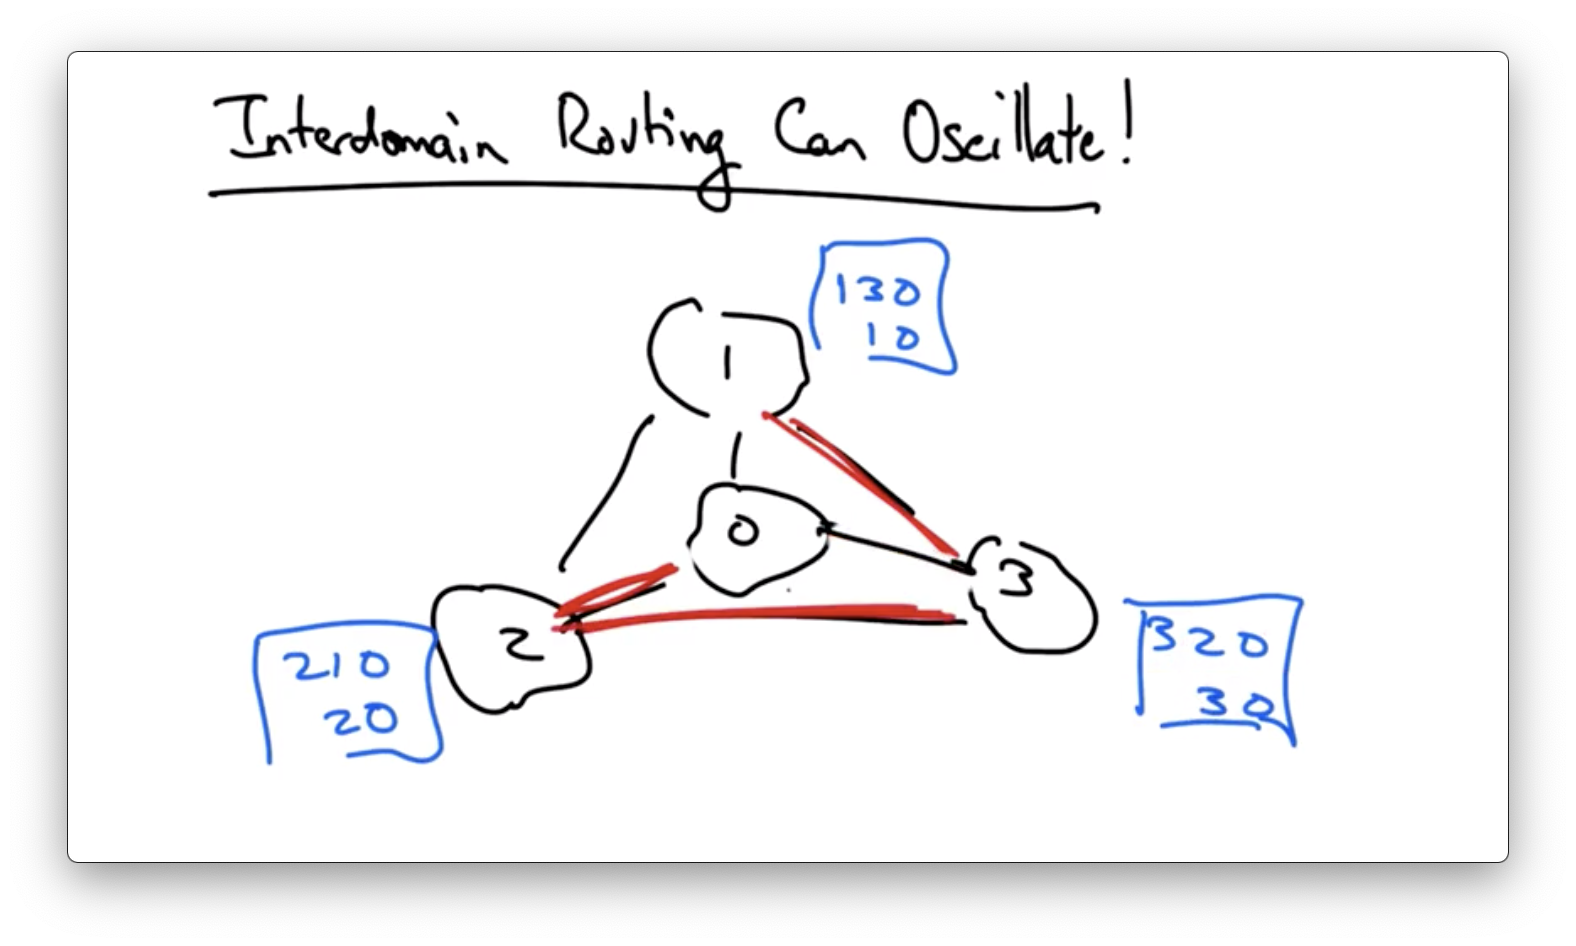 Interdomain Routing Can Oscillate!
130
10
1
0
3
2
210
20
320
30